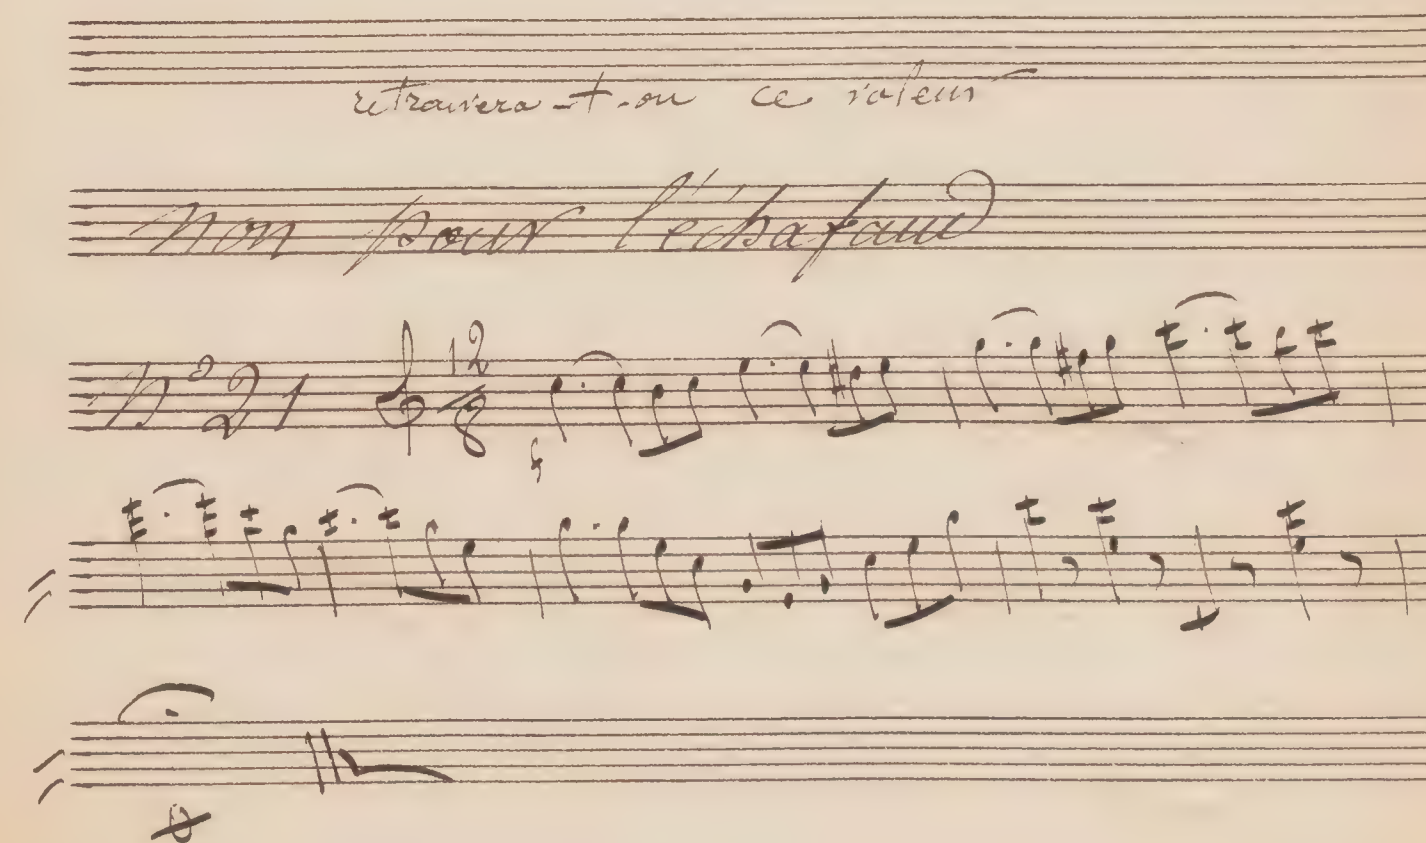 retrouvera-t-on ce voleur
non pour l'échafaud
N° 21 12/8